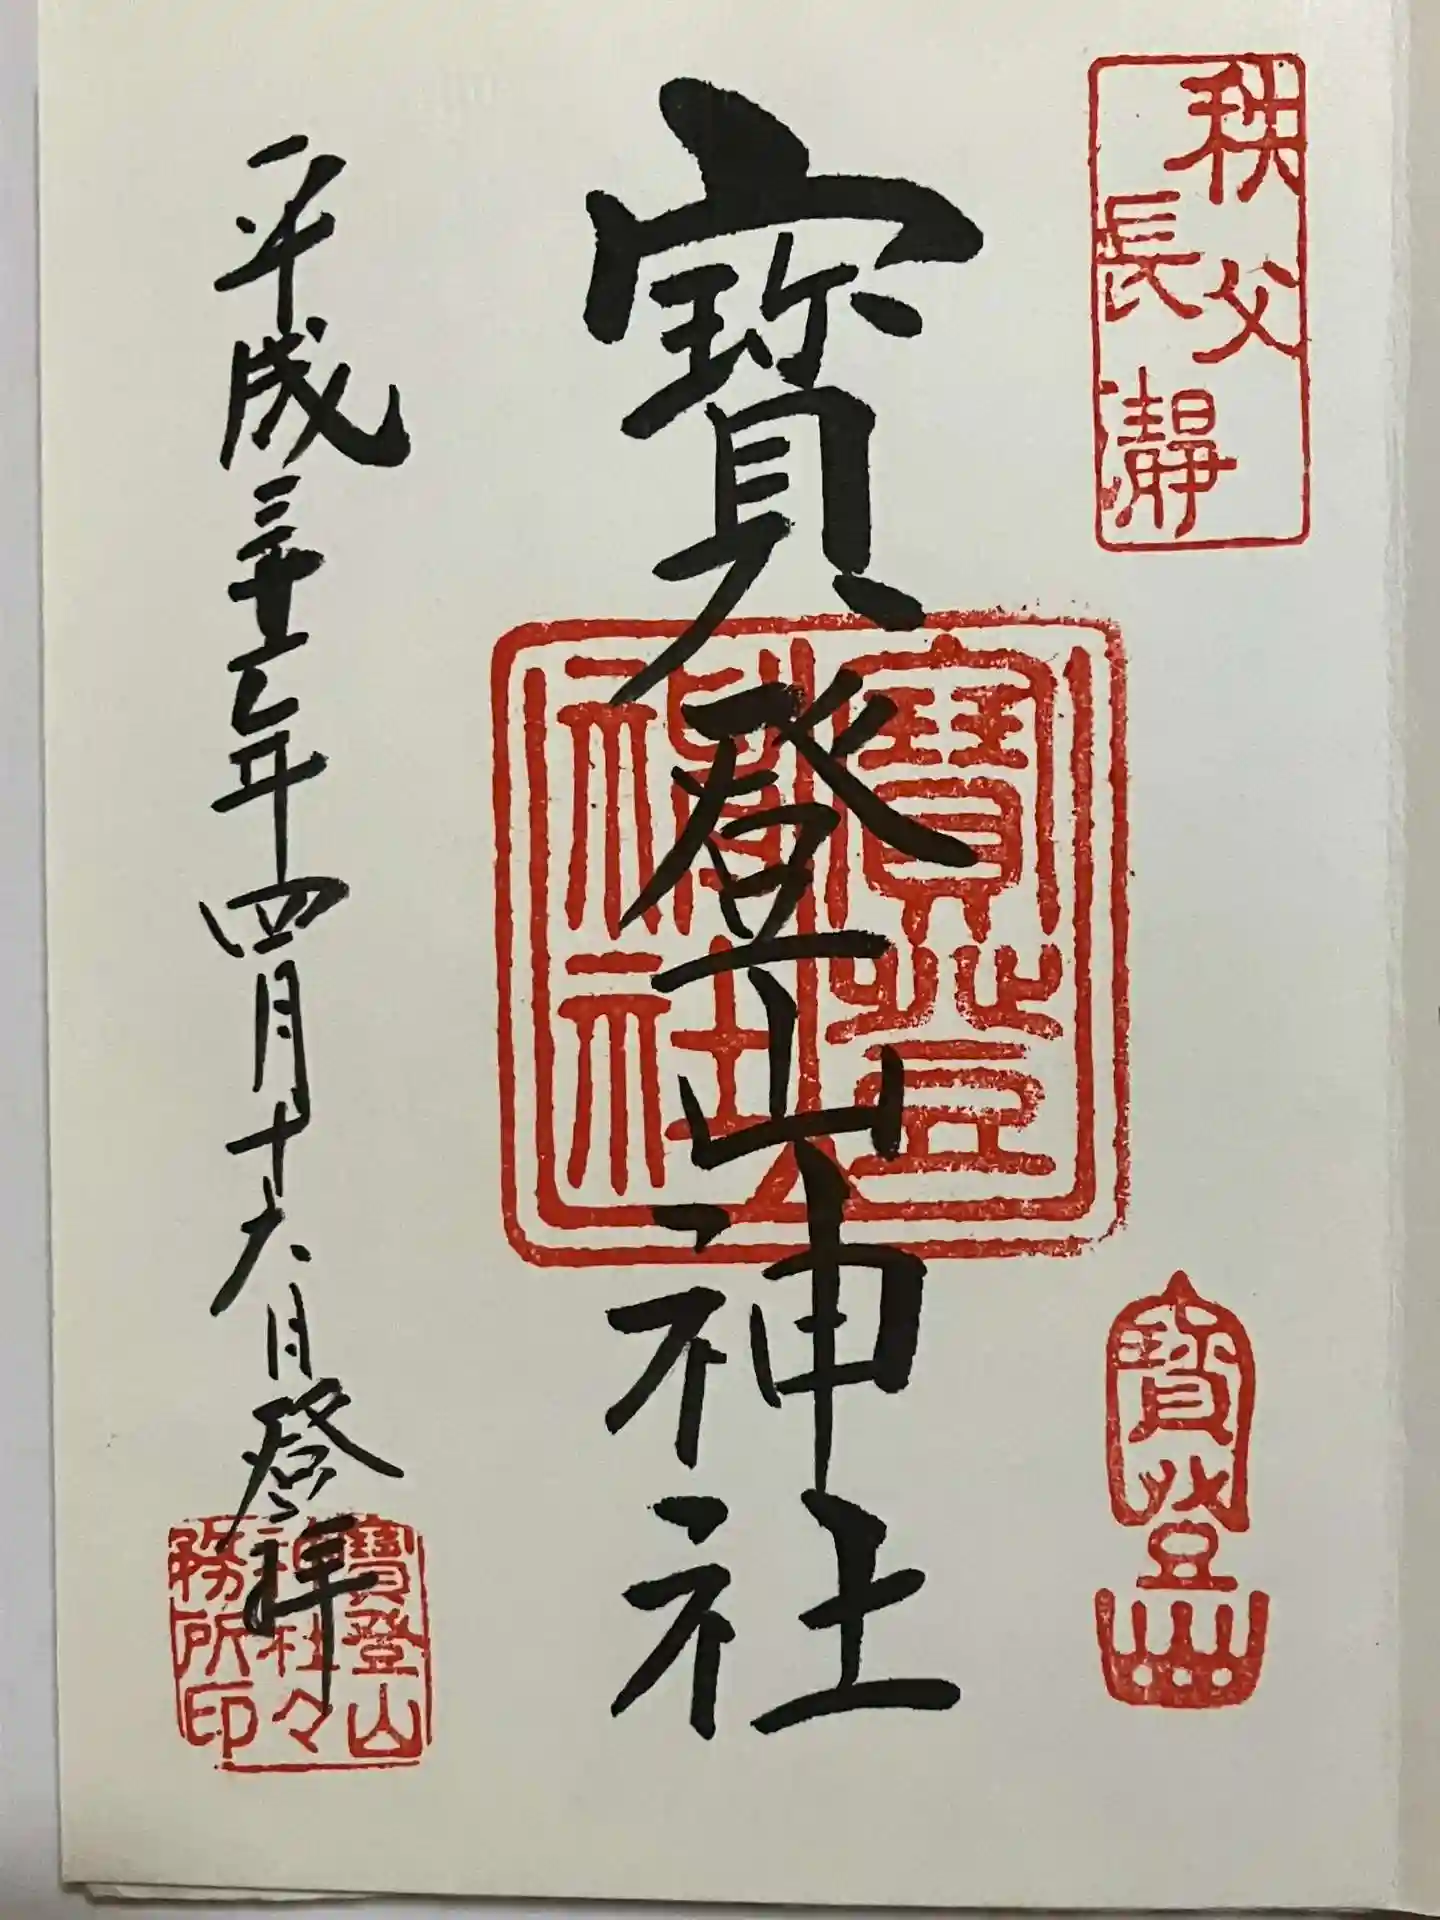 秩父
長瀞
寶登山
寶登山神社
寶登山神社
平成三十一年四月十六日登拝
寶登山
神社々
務所印